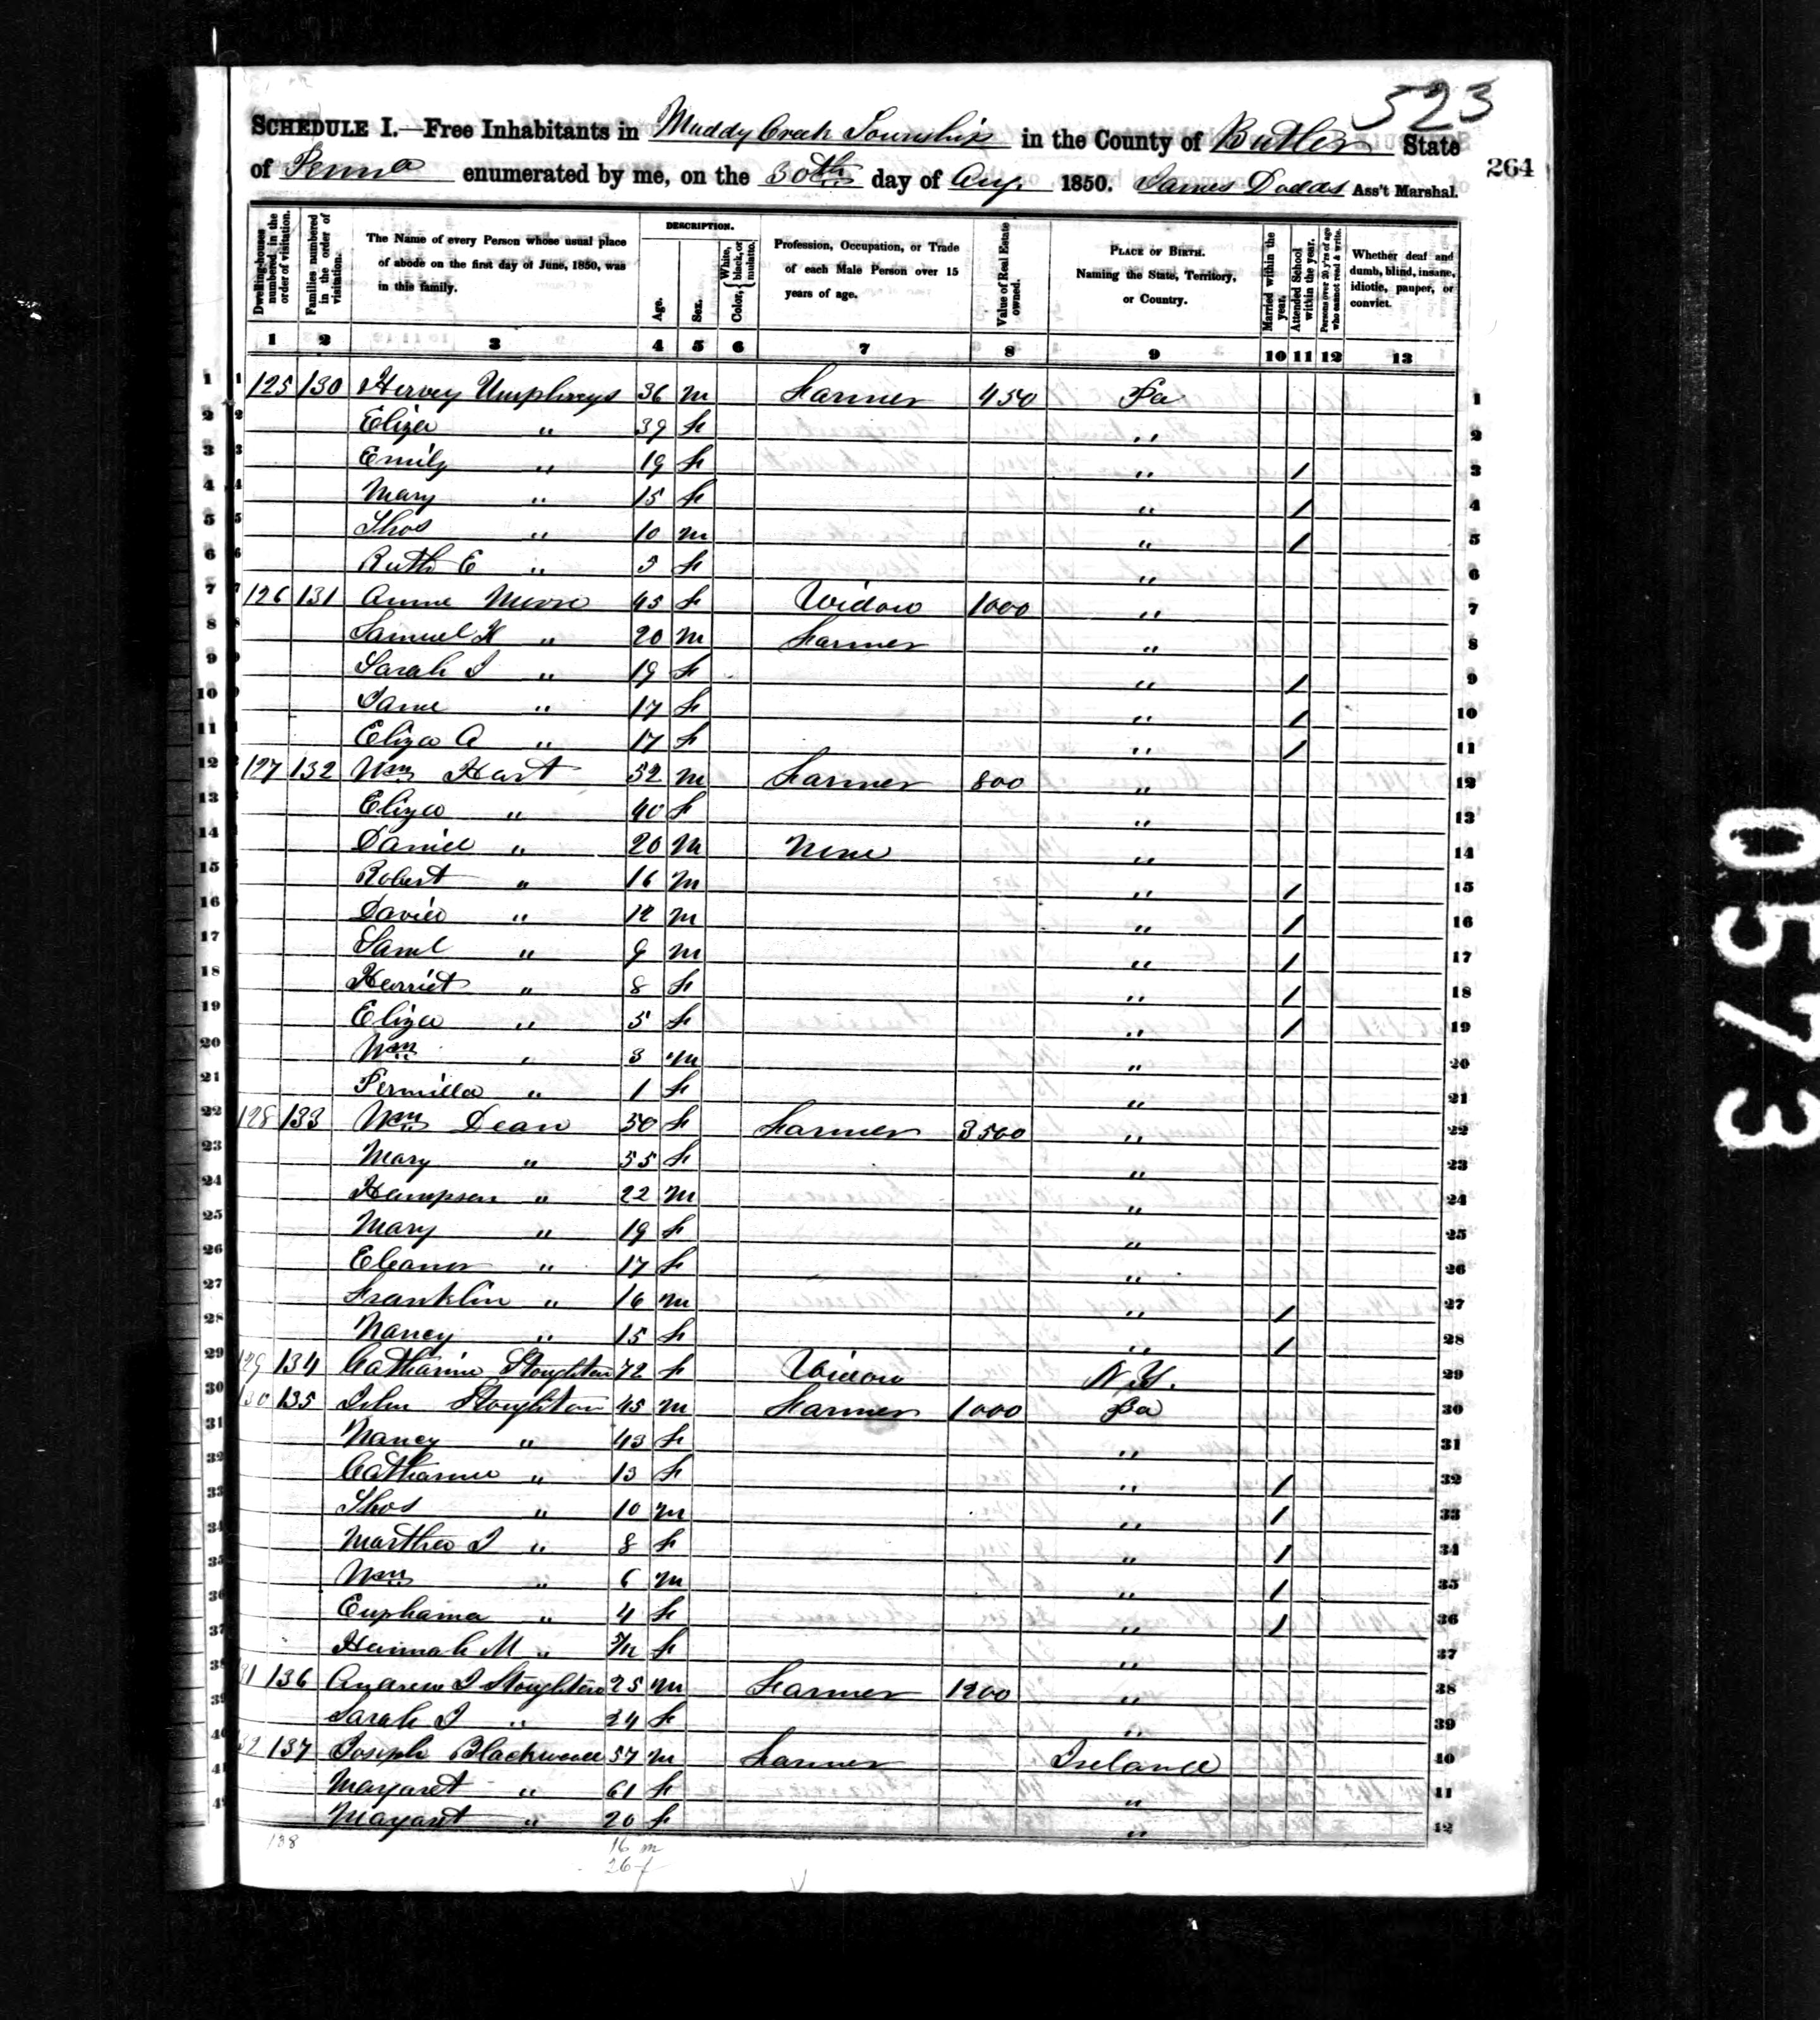 523
SCHEDULE I.—Free Inhabitants in Muddy Creek Township in the County of Butler State
of Penna enumerated by me, on the 30th day of Aug. 1850. James Dodds Ass't Marshal.
264
Dwelling-houses numbered in the order of visitation.
Families numbered in the order of visitation.
The Name of every Person whose usual place of abode on the first day of June, 1850, was in this family.
DESCRIPTION.
Age.
Sex.
Color, { White, black, or mulatto.
Profession, Occupation, or Trade of each Male Person over 15 years of age.
Value of Real Estate owned.
PLACE OF BIRTH.
Naming the State, Territory, or Country.
Married within the year.
Attended School within the year.
Persons over 20 y'rs of age who cannot read & write.
Whether deaf and dumb, blind, insane, idiotic, pauper, or convict.
1 2 3 4 5 6 7 8 9 10 11 12 13
1 125 130 Hervey Umphreys 36 m Farmer 450 Pa 1
2 Eliza " 39 f " 2
3 Emily " 19 f " / 3
4 Mary " 15 f " / 4
5 Thos " 10 m " / 5
6 Ruth E " 5 f " 6
7 126 131 Anne Moore 45 f Widow 1000 " 7
8 Samuel H " 20 m Farmer " 8
9 Sarah J " 19 f " / 9
10 Jane " 17 f " / 10
11 Eliza A " 17 f " / 11
12 127 132 Wm Hart 52 m Farmer 800 " 12
13 Eliza " 40 f " 13
14 Daniel " 20 m None " 14
15 Robert " 16 m " / 15
16 David " 12 m " / 16
17 Saml " 9 m " / 17
18 Harriet " 8 f " / 18
19 Eliza " 5 f " / 19
20 Wm " 3 m " 20
21 Permilla " 1 f " 21
22 128 133 Wm Dean 50 f Farmer 3500 " 22
23 Mary " 55 f " 23
24 Hampson " 22 m " 24
25 Mary " 19 f " 25
26 Eleanor " 17 f " 26
27 Franklin " 16 m " / 27
28 Nancy " 15 f " / 28
29 129 134 Catharine Stoughton 72 f Widow N.Y. 29
30 130 135 John Stoughton 45 m Farmer 1000 Pa 30
31 Nancy " 43 f " 31
32 Catharine " 13 f " / 32
33 Thos " 10 m " / 33
34 Martha J " 8 f " / 34
35 Wm " 6 m " / 35
36 Euphama " 4 f " / 36
37 Hannah M " f " 37
38 31 136 Andrew J Stoughton 25 m Farmer 1200 " 38
39 Sarah J " 24 f " 39
40 32 137 Joseph Blackwood 57 m Farmer Ireland 40
41 Margaret " 61 f " 41
42 Margaret " 20 f " 42
138
16 m
26 f
0573